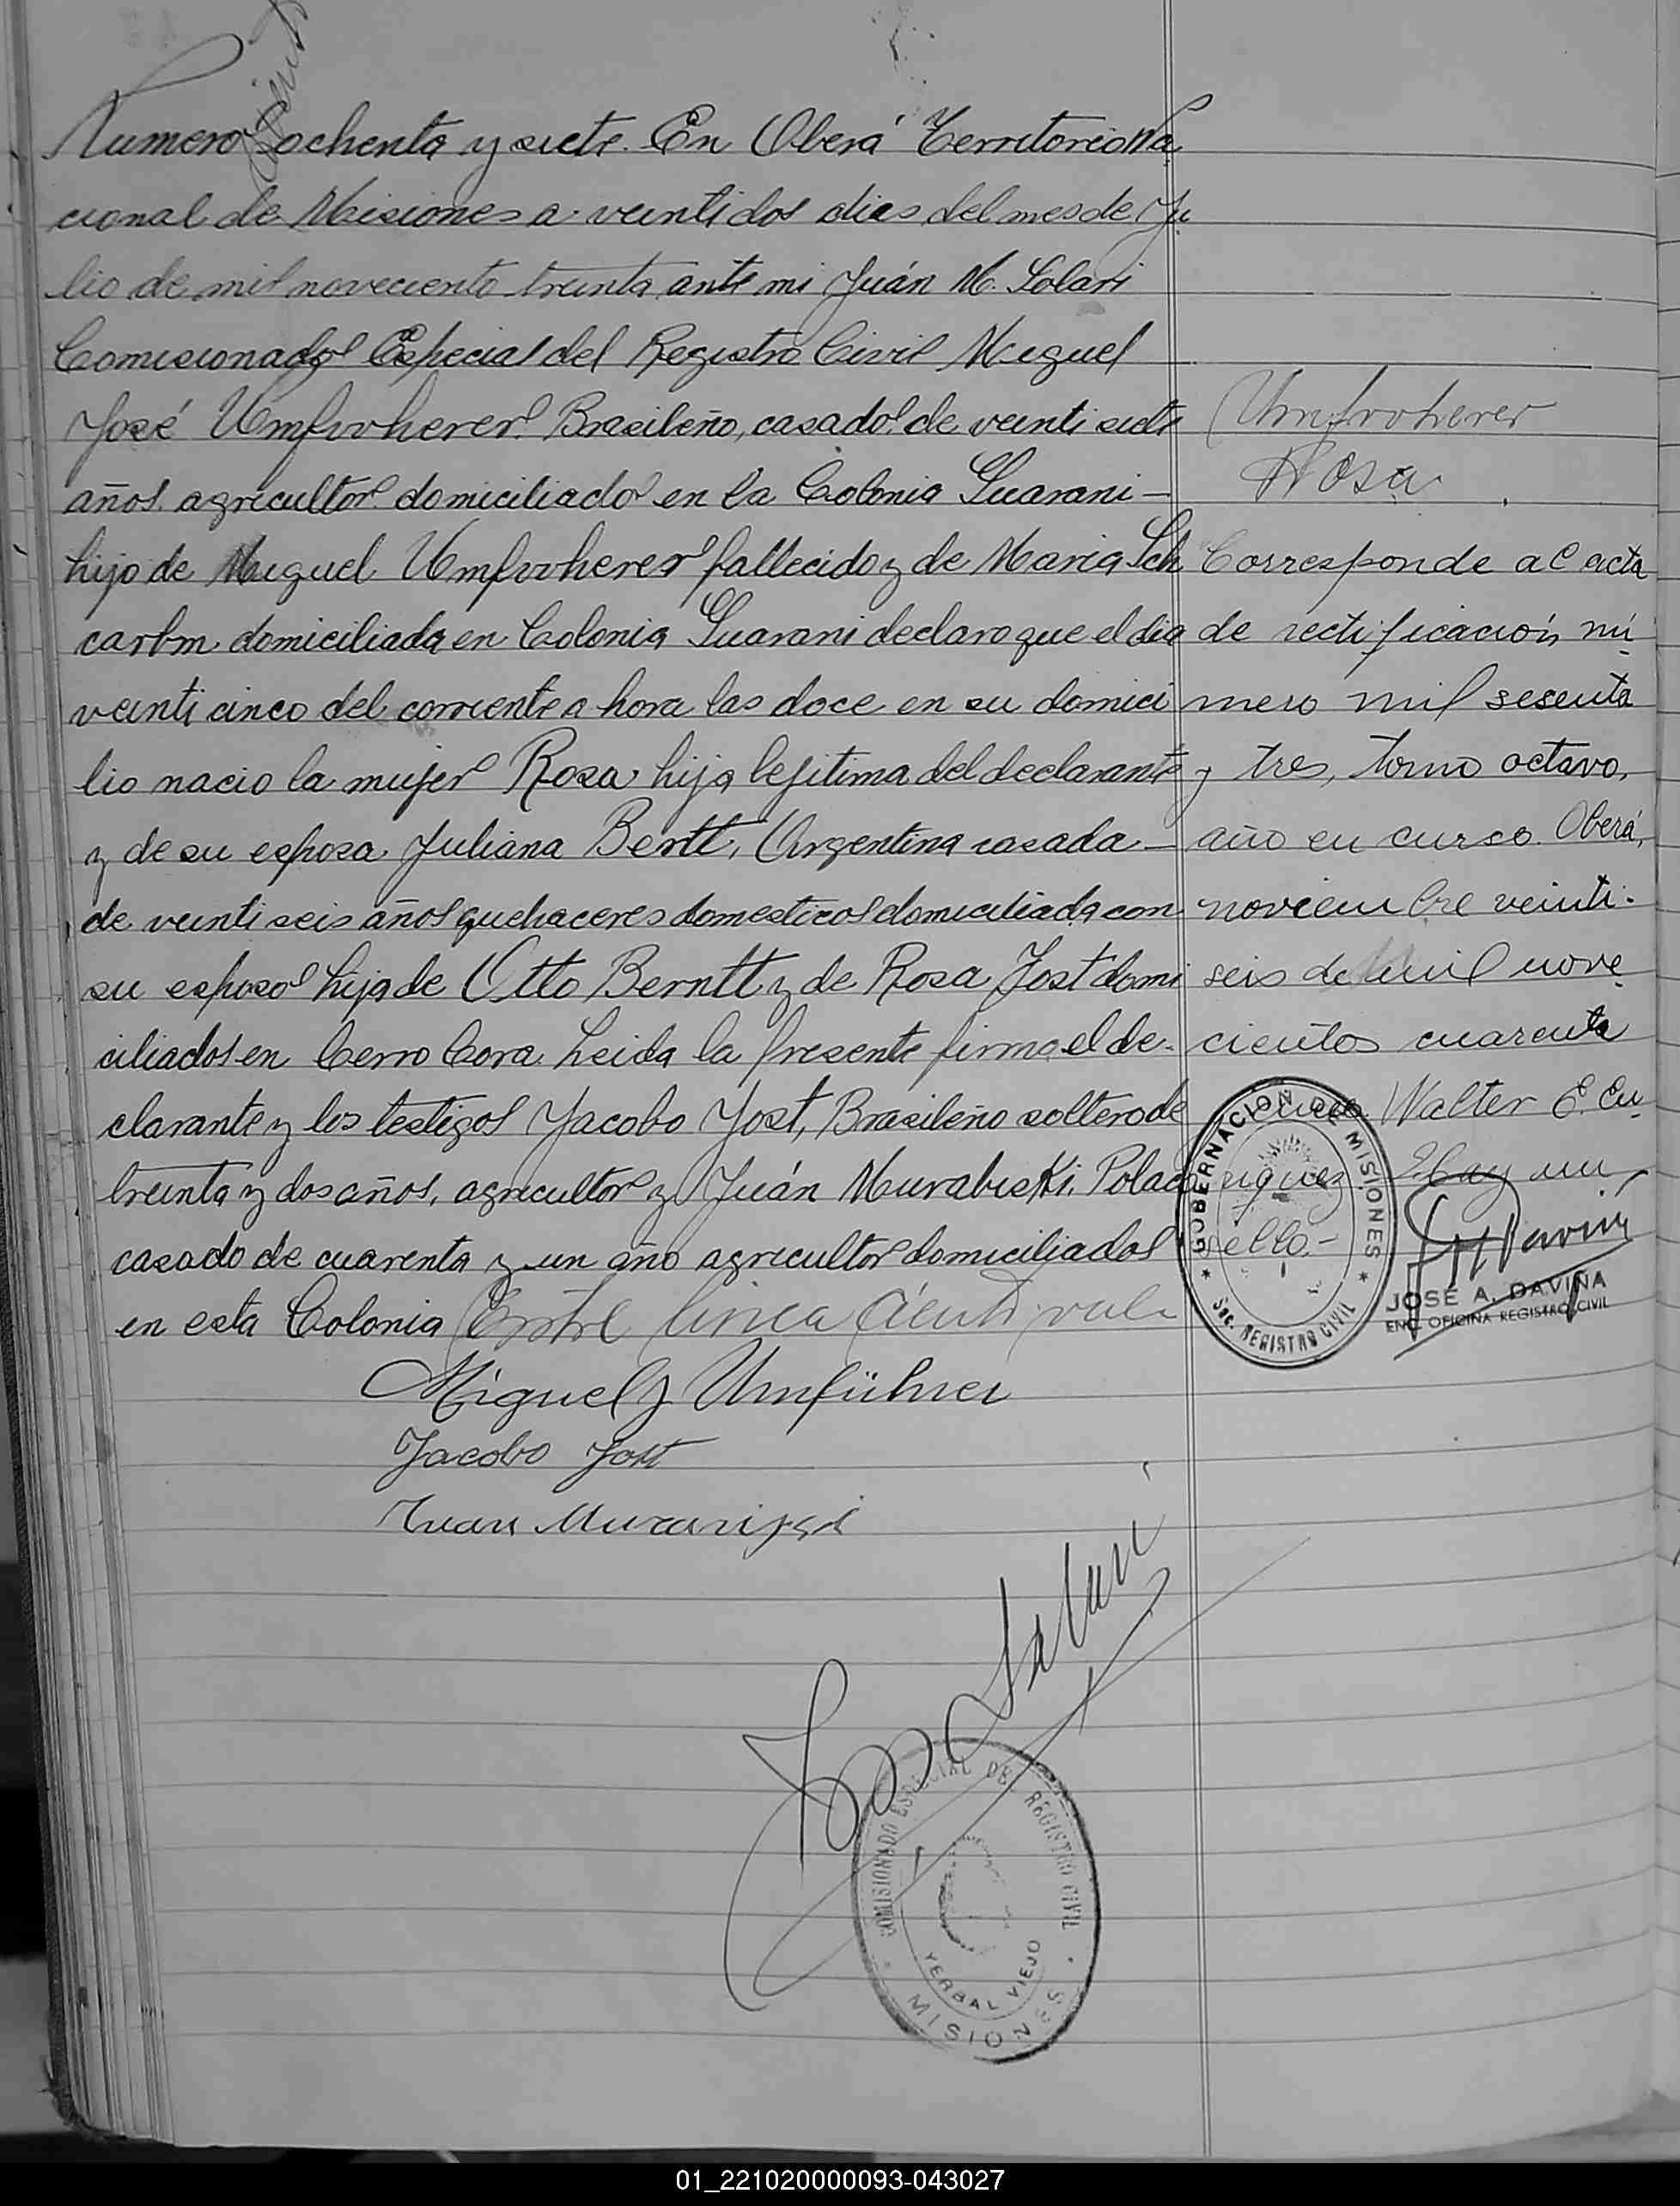 ciento
Numero ochenta y siete. En Oberá Territorio Na
cional de Misiones a veinti dos dias del mes de Ju
lio de mil noveciento treinta ante mi Juán M. Solari
Comisionado Especial del Registro Civil Miguel
José Umfwherer Brasileño, casado de veinti siete
años agricultor domiciliado en la Colonia Guarani —
hijo de Miguel Umfwherer fallecido y de Maria Sch
carbm domiciliada en Colonia Guarani declaro que el dia
veinti cinco del corriente a hora las doce en su domici
lio nacio la mujer Rosa hija lejitima del declarante
y de su esposa Juliana Bertt, Argentina casada —
de veinti seis años quehaceres domesticos domiciliada con
su esposo hija de Otto Berntt y de Rosa Jost domi
ciliados en Cerro Cora. Leida la presente firma el de-
clarante y los testigos Jacobo Jost, Brasileño soltero de
treinta y dos años, agricultor y Juán Murabuski, Polaco
casado de cuarenta y un año agricultor domiciliados
en esta Colonia Entre linea ciento vale
Miguel J Umführer
Jacobo Jost
Juan
Solari
COMISIONADO ESPECIAL DEL REGISTRO CIVIL
YERBAL VIEJO
MISIONES
Umfwherer
Rosa
Corresponde al acta
de rectificación nú
mero mil sesenta
y tres, tomo octavo,
año en curso. Oberá,
noviembre veinti-
seis de mil nove
cientos cuarenta
Walter E. Eu
riquez Hay un
sello.-
GOBERNACION DE MISIONES
Sec. REGISTRO CIVIL
JOSÉ A. DAVIÑA
ENC. OFICINA REGISTRO CIVIL
01_221020000093-043027